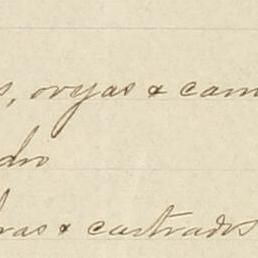 s, ovejas & carn
dro
ras & castrados